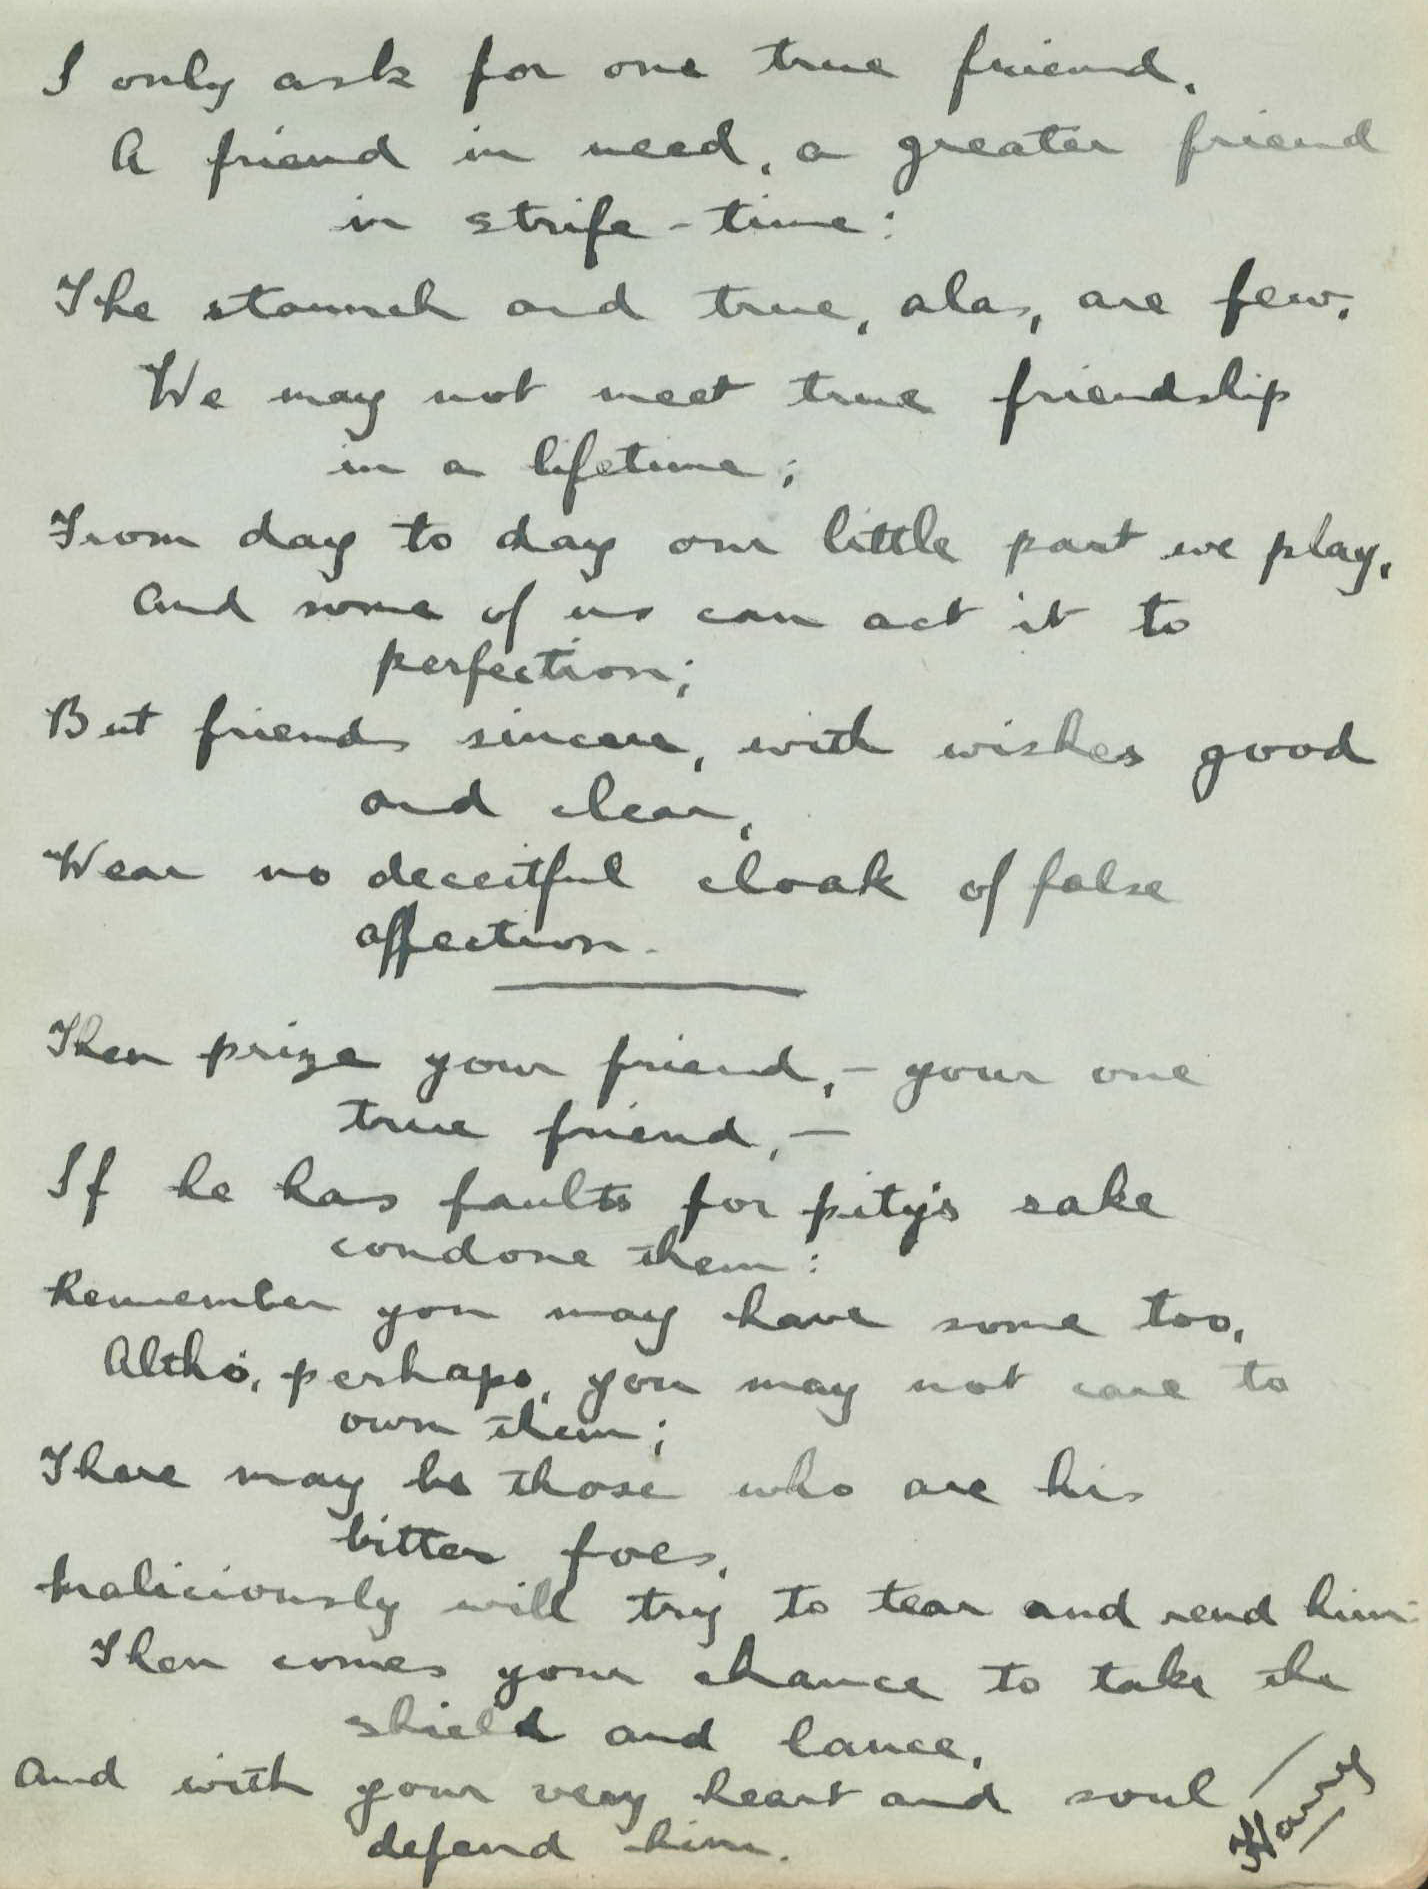 I only ask for one true friend,
A friend in need, a greater friend
in strife-time:
The staunch and true, alas, are few,
We may not meet true friendship
in a lifetime;
From day to day our little part we play,
And some of us can act it to
perfection;
But friends sincere, with wishes good
and clear,
Wear no deceitful cloak of false
affection.
Then prize your friend, - your one
true friend, -
If he has faults for pity's sake
condone them:
Remember you may have some too,
Altho', perhaps, you may not care to
own them;
There may be those who are his
bitter foes,
Maliciously will try to tear and rend him
Then comes your chance to take the
shield and lance,
And with your very heart and soul
defend him.